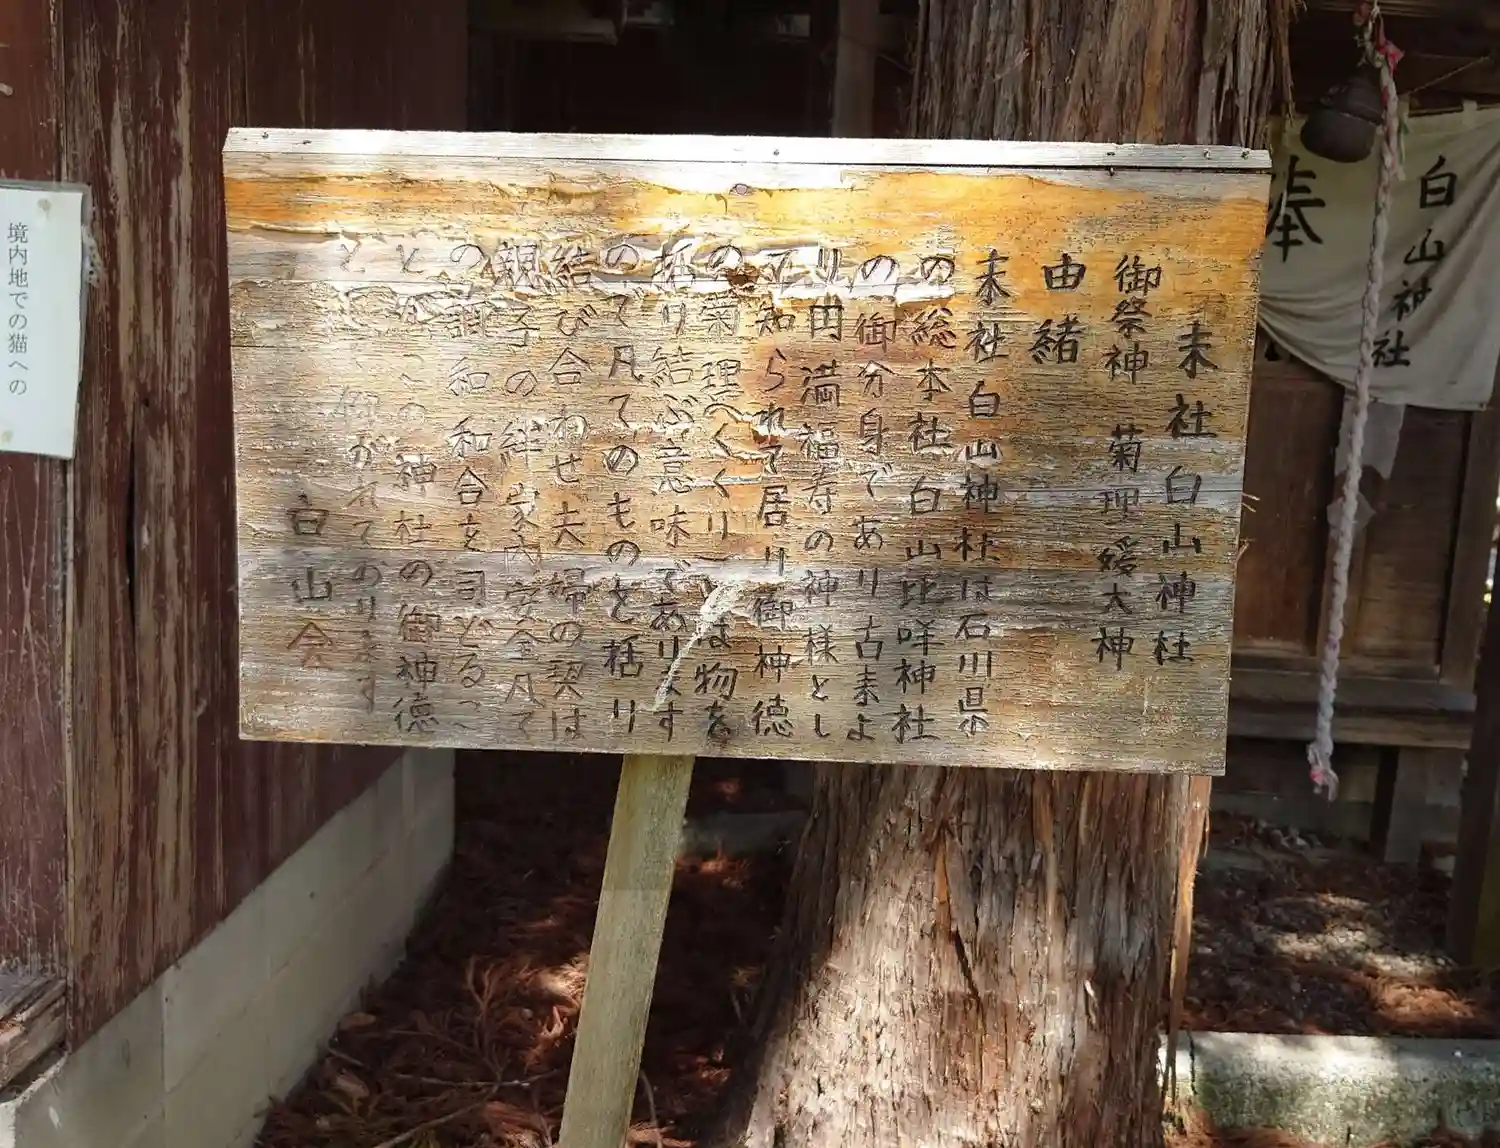 末社白山神社
御祭神 菊理媛大神
由緒
末社白山神社は石川県
の総本社白山比咩神社
の御分身であり古来よ
り円満福寿の神様とし
て知られて居り御神徳
の菊理(くくり)は物を
括り結ぶ意味であります
ので凡てのものを括り
結び合わせ夫婦の契は
親子の絆家内安全凡て
の調和和合を司どるっ
この神社の御神徳
と
仰がれております
白山会
奉
白山神社
境内地での猫への